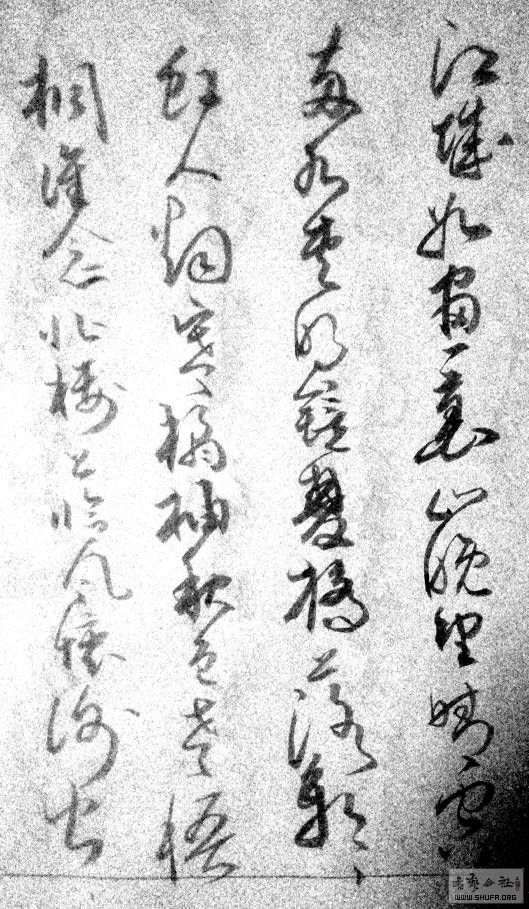 江城如畫裏山晚望晴空
兩水夾明鏡雙橋落彩
虹人烟寒橘柚秋色老梧
桐誰念北樓上臨風懷謝公
书艺公社
WWW.SHUFA.ORG